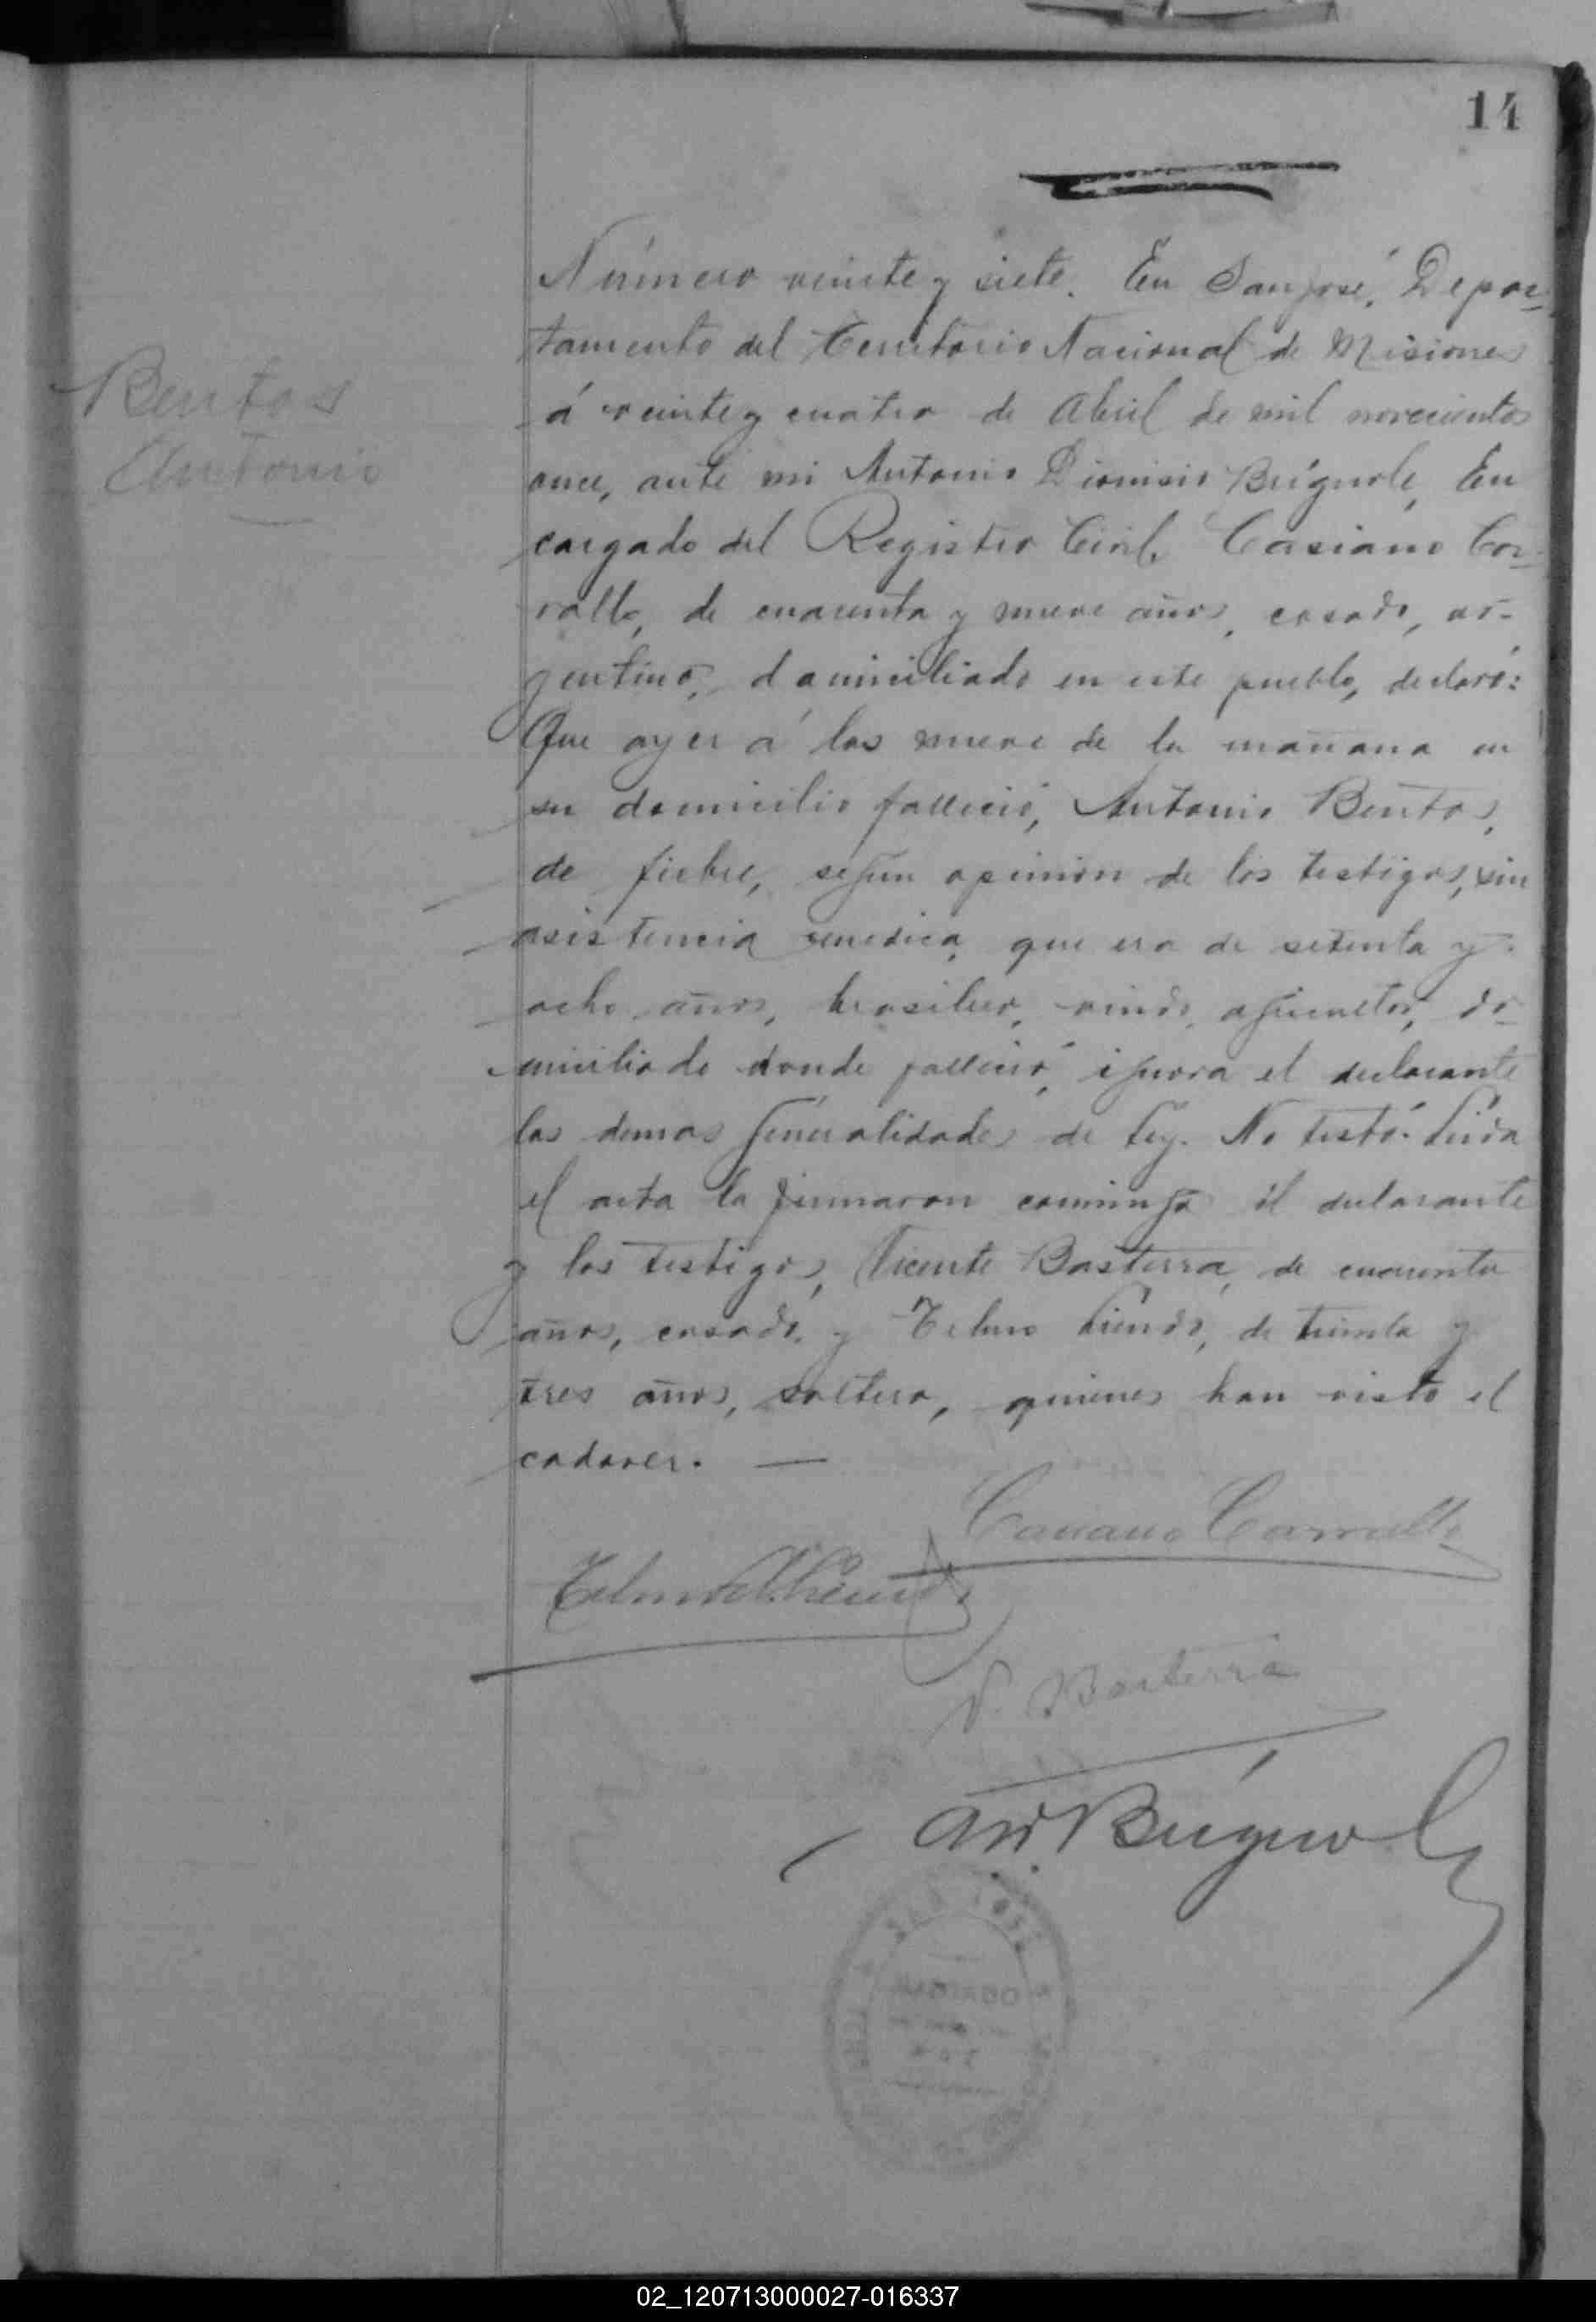 14
Número veinte y siete. En San José, Depar-
tamento del Territorio Nacional de Misiones
Bentos
Antonio
á veinte y cuatro de Abril de mil novecientos
once, ante mi Antonio Dionisio Brígnole, En
cargado del Registro Civil, Casiano Cor-
rallo, de cuarenta y nueve años, casado, ar-
gentino, domiciliado en este pueblo, declaró:
Que ayer á las nueve de la mañana en
su domicilio falleció, Antonio Bentos,
de fiebre, según opinion de los testigos, sin
asistencia medica, que era de setenta y
ocho años, brasilero, viudo, agricultor, do-
miciliado donde falleció, ignora el declarante
las demas generalidades de ley. No testó. Leida
el acta la firmaron conmigo el declarante
y los testigos, Vicente Basterra, de cuarenta
años, casado, y Telmo Liendo, de treinta y
tres años, soltero, quienes han visto el
cadaver. —
Casiano Corrallo
Telmo Liendo
V. Basterra
AD Brígnole
SAN JOSE
JUZGADO
02_120713000027-016337